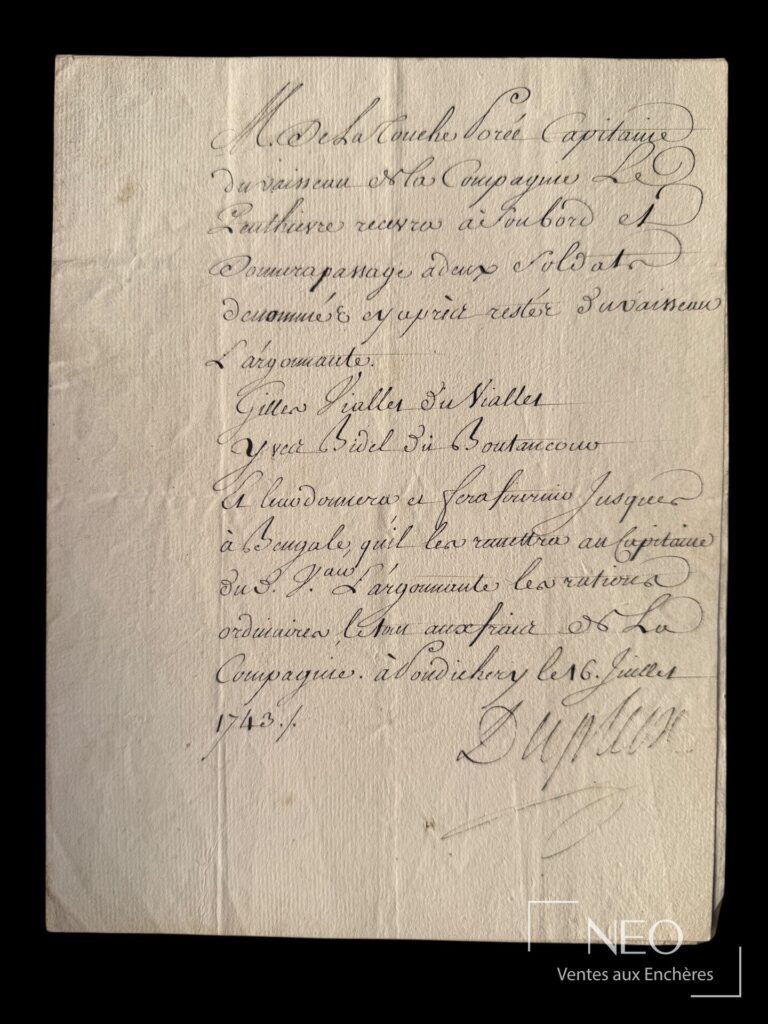 M. De La Touche Porée Capitaine
du vaisseau de la Compagnie Le
Penthievre recevra à son bord et
donnera passage a deux Soldats
denommés cy après restés du vaisseau
L'argonnaute.
Gilles Viallet du Viallet
Yves Bidel dit Boutancour
Et leur donnera et fera fournir Jusques
à Bengale, qu'il les remettra au Capitaine
du d. V.au L'argonnaute les rations
ordinaires, le tout aux frais de La
Compagnie. à Pondichery le 16. Juillet
1743./.
Dupleix
NEO
Ventes aux Enchères